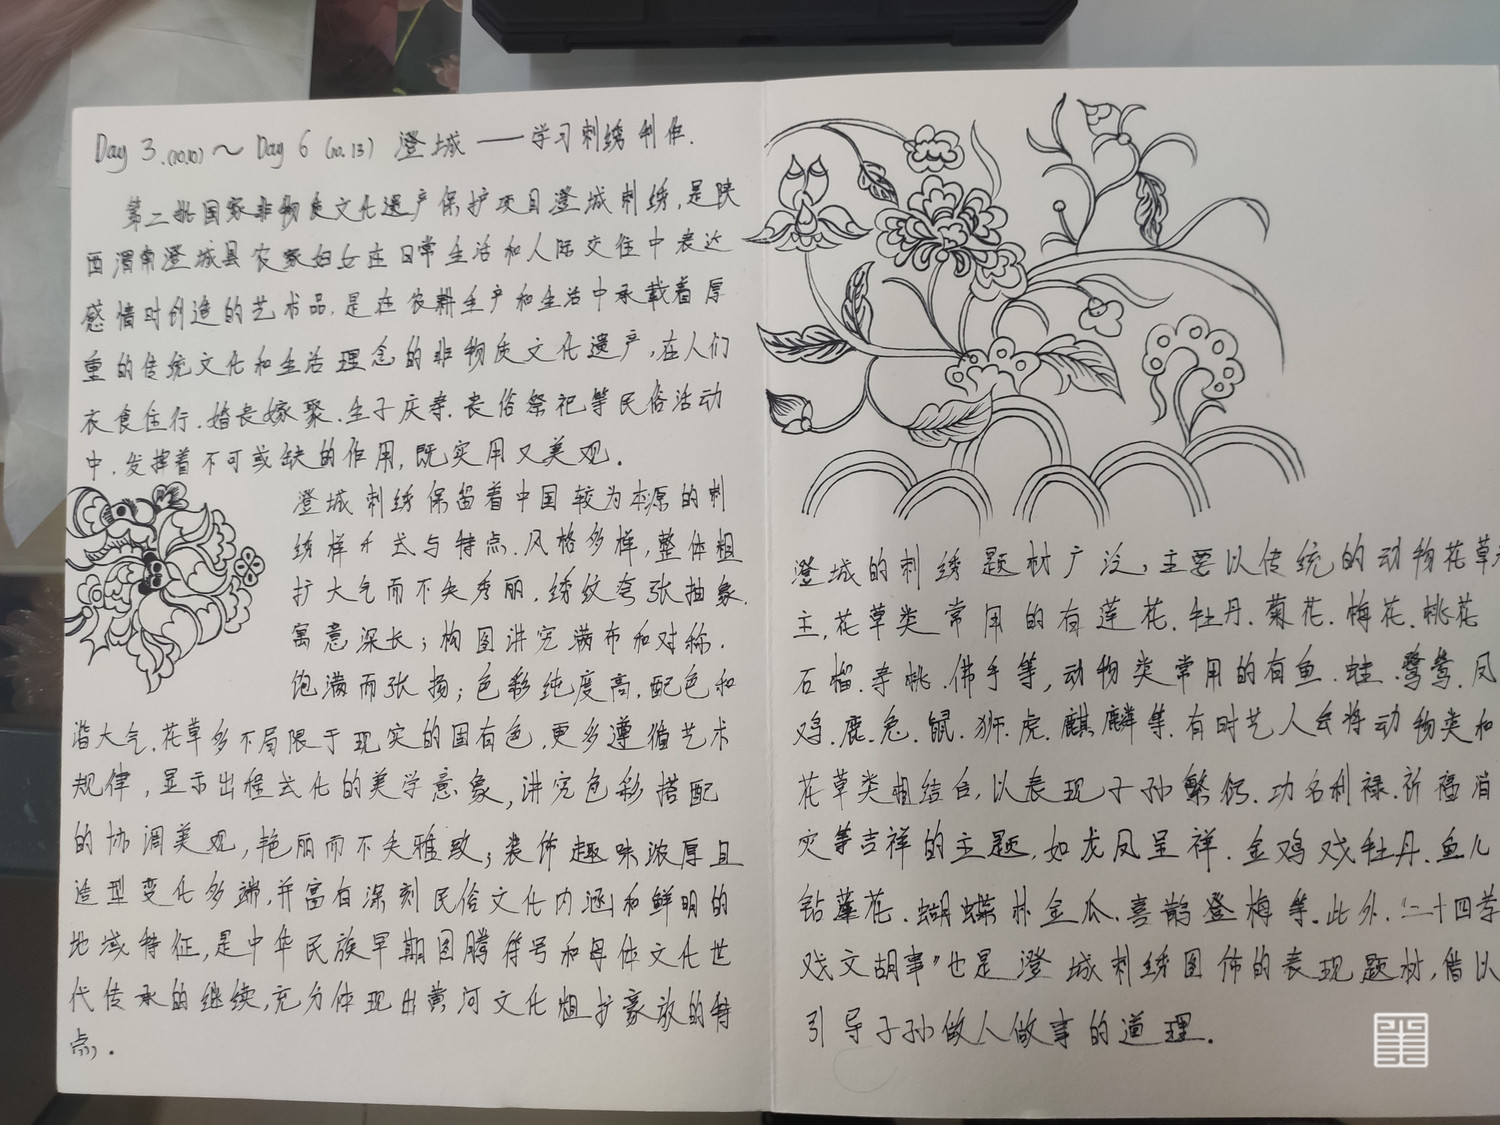 Day 3.(10.10)～Day 6(10.13) 澄城——学习刺绣制作.
第二批国家非物质文化遗产保护项目澄城刺绣,是陕
西渭南澄城县农家妇女在日常生活和人际交往中表达
感情时创造的艺术品.是在农耕生产和生活中承载着厚
重的传统文化和生活理念的非物质文化遗产,在人们
衣食住行.婚丧嫁聚.生子庆寿.丧俗祭祀等民俗活动
中.发挥着不可或缺的作用,既实用又美观.
澄城刺绣保留着中国较为本原的刺
绣样式与特点.风格多样,整体粗
扩大气而不失秀丽.绣纹夸张抽象.
寓意深长;构图讲究满布和对称.
饱满而张扬;色彩纯度高.配色和
谐大气.花草多不局限于现实的固有色,更多遵循艺术
规律,显示出程式化的美学意象,讲究色彩搭配
的协调美观,艳丽而不失雅致;装饰趣味浓厚且
造型变化多端,并富有深刻民俗文化内涵和鲜明的
地域特征,是中华民族早期图腾符号和母体文化世
代传承的继续,充分体现出黄河文化粗扩豪放的特
点.
澄城的刺绣题材广泛,主要以传统的动物花草为
主,花草类常用的有莲花.牡丹.菊花.梅花.桃花
石榴.寿桃.佛手等,动物类常用的有鱼.蛙.鹭鸶.凤
鸡.鹿.兔.鼠.狮.虎.麒麟等.有时艺人会将动物类和
花草类相结合,以表现子孙繁衍.功名利禄.祈福消
灾等吉祥的主题,如龙凤呈祥.金鸡戏牡丹.鱼儿
钻莲花.蝴蝶扑金瓜.喜鹊登梅等.此外.“二十四孝
戏文胡事”也是澄城刺绣图饰的表现题材,借以
引导子孙做人做事的道理.